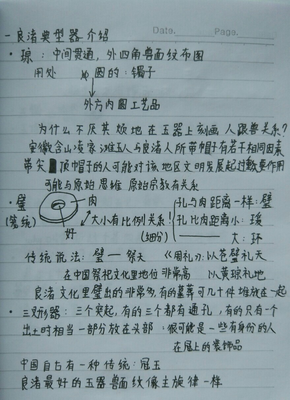 一良渚典型器介绍
Date. Page.
• 琮：中间贯通，外四角兽面纹布图
用处 圆的：镯子
外方内圆工艺品
为什么不厌其烦地在玉器上刻画人跟兽关系？
安徽含山凌家滩玉人与良渚人所带帽子有若干相同因素
带尖顶帽子的人可能对该地区文明发展起过教要作用
可能与原始思维 原始宗教有关系
• 璧 肉 孔与肉距离一样：璧
(笼统) 大小有比例关系！ 孔比肉距离小：瑗
好 (细分) 大：环
传统说法：璧—祭天 《周礼》：以苍璧礼天
在中国祭祀文化里地位非常高 以黄琮礼地
良渚文化里璧出的非常多，有的墓葬可几十件堆放在一起
• 三叉形器：三个突起，有的三个都有通孔，有的只有一个
出土时相当一部分放在头部 很可能是一些有身份的人
在冠上的装饰品
中国自古有一种传统：冠玉
良渚最好的玉器兽面纹像主旋律一样